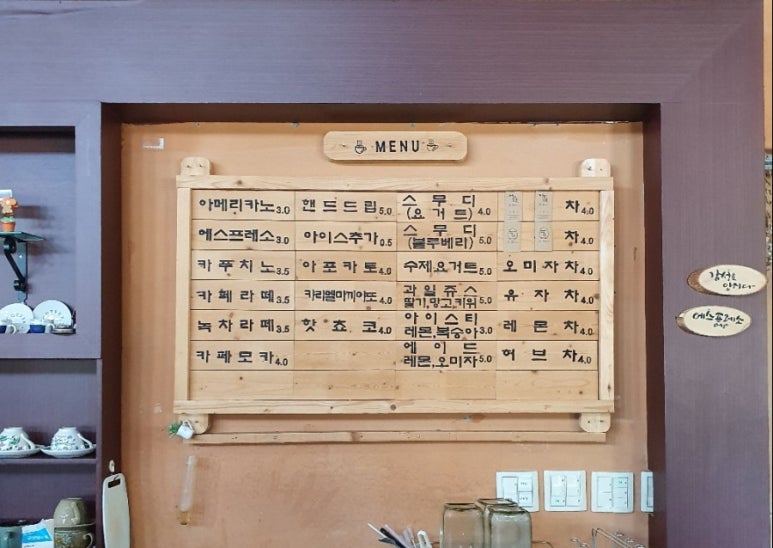 MENU
아메리카노 3.0
에스프레소 3.0
카푸치노 3.5
카페라떼 3.5
녹차라떼 3.5
카페모카 4.0
핸드드립 5.0
아이스추가 0.5
아포카토 4.0
카라멜마끼아또 4.0
핫쵸코 4.0
스무디
(요거트) 4.0
스무디
(블루베리) 5.0
수제요거트 5.0
과일쥬스
딸기,망고,키위 5.0
아이스티
레몬,복숭아 3.0
에이드
레몬,오미자 5.0
차 4.0
차 4.0
오미자차 4.0
유자차 4.0
레몬차 4.0
허브차 4.0
에스프레소